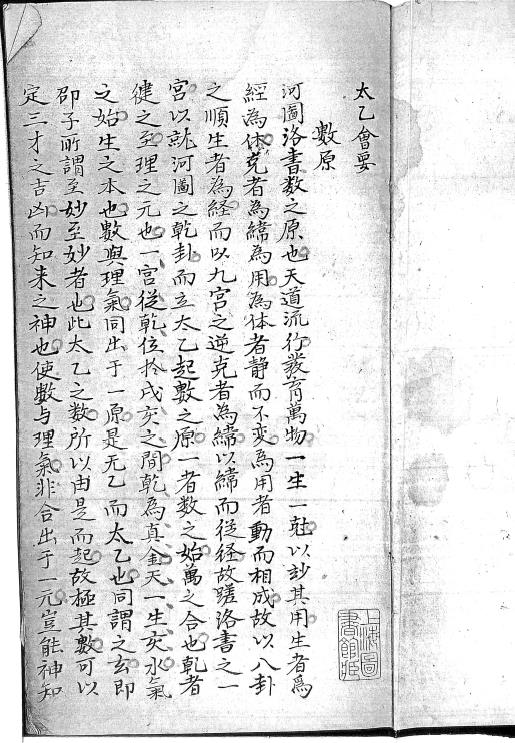 太乙會要
數原
河圖洛書数之原也天道流行發育萬物一生一尅以妙其用生者為
經為体克者為緯為用為体者静而不变為用者動而相成故以八卦
之順生者為経而以九宫之逆克者為緯以緯而従経故蹉洛書之一
宫以就河圖之乾卦而立太乙起數之原一者数之始萬之合也乾者
健之至理之元也一宫従乾位扵戌亥之間乾為真金天一生亥水氣
之始生之本也數與理氣同出于一原是无乙而太乙也同謂之玄即
邵子所謂至妙至妙者也此太乙之数所以由是而起故極其數可以
定三才之吉凶而知来之神也使數与理氣非合出于一元豈能神知
上海圖書館藏